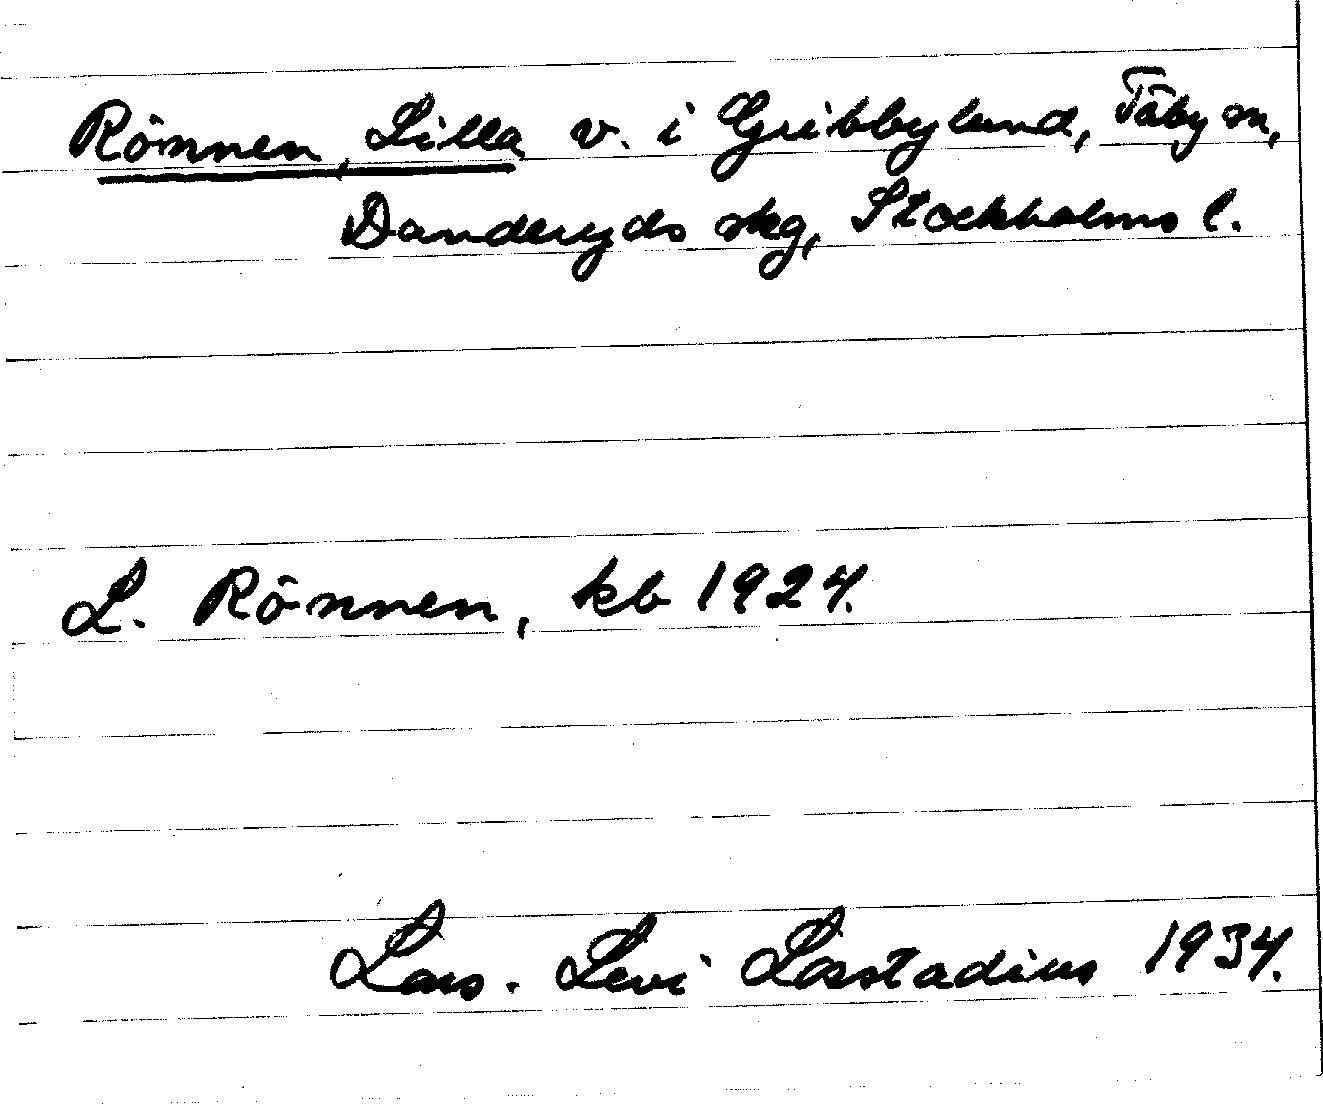 Rönnen, Lilla v. i Gribbylund, Täby sn,
Danderyds skg, Stockholms l.
L. Rönnen, kb 1924.
Lars-Levi Læstadius 1934.